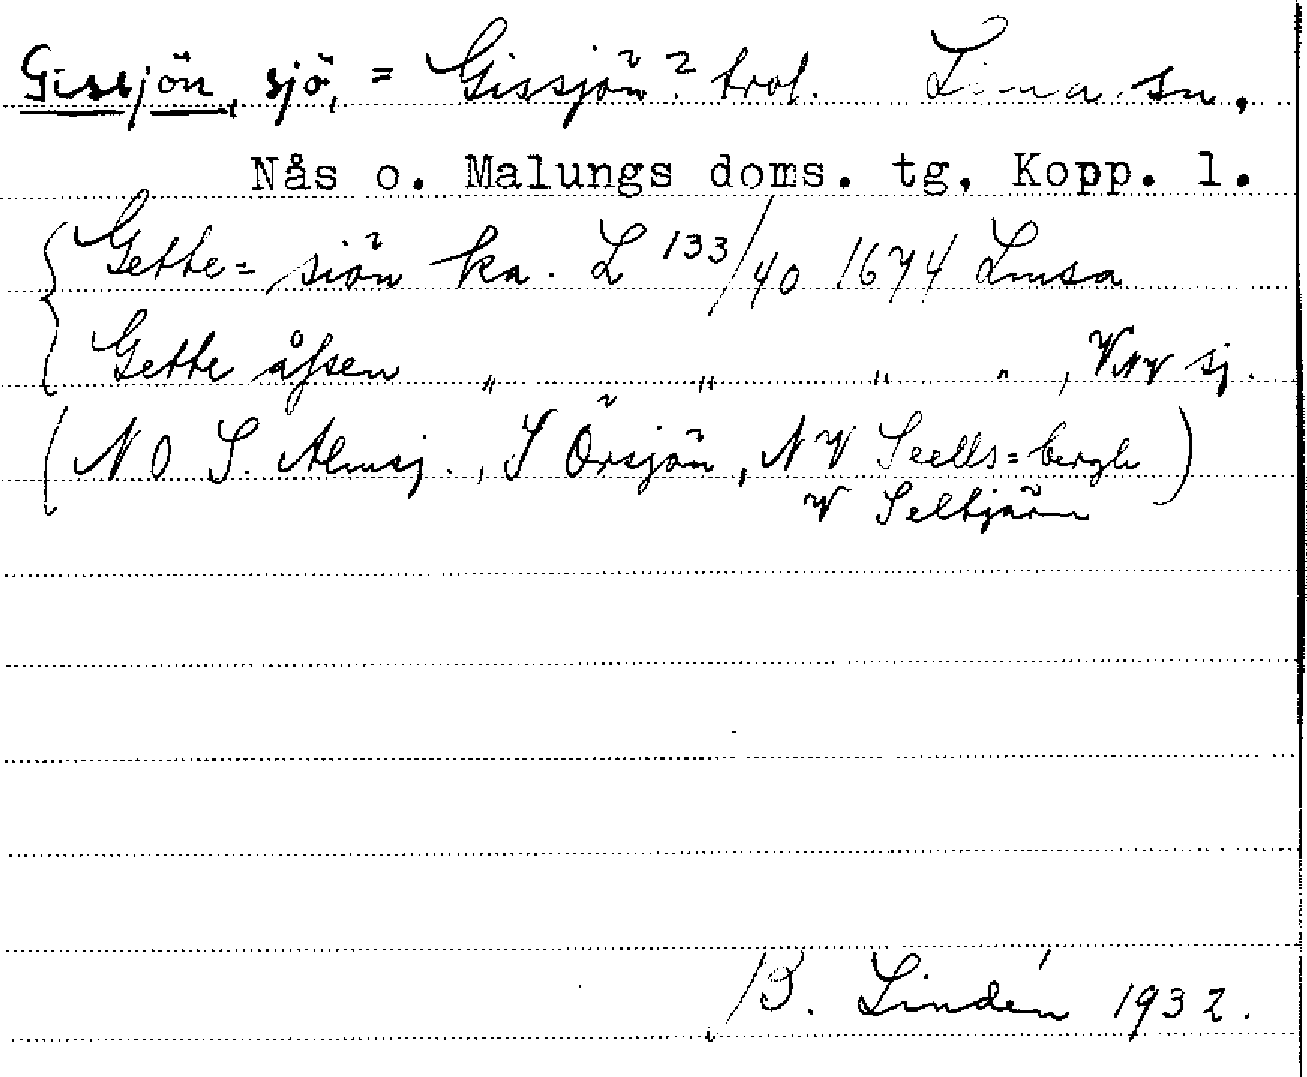 Gissjön, sjö, = Gissjön? trol. Lima sn.
Nås o. Malungs doms. tg. Kopp. l.
Gette= siön ka. L 133/40 1674 Limsa
Gette åhsen " " " " , VNV sj.
(NO S. Almsj., S Örsjön, NV Seells=bergh
V Seltjärn)
B. Lindén 1932.